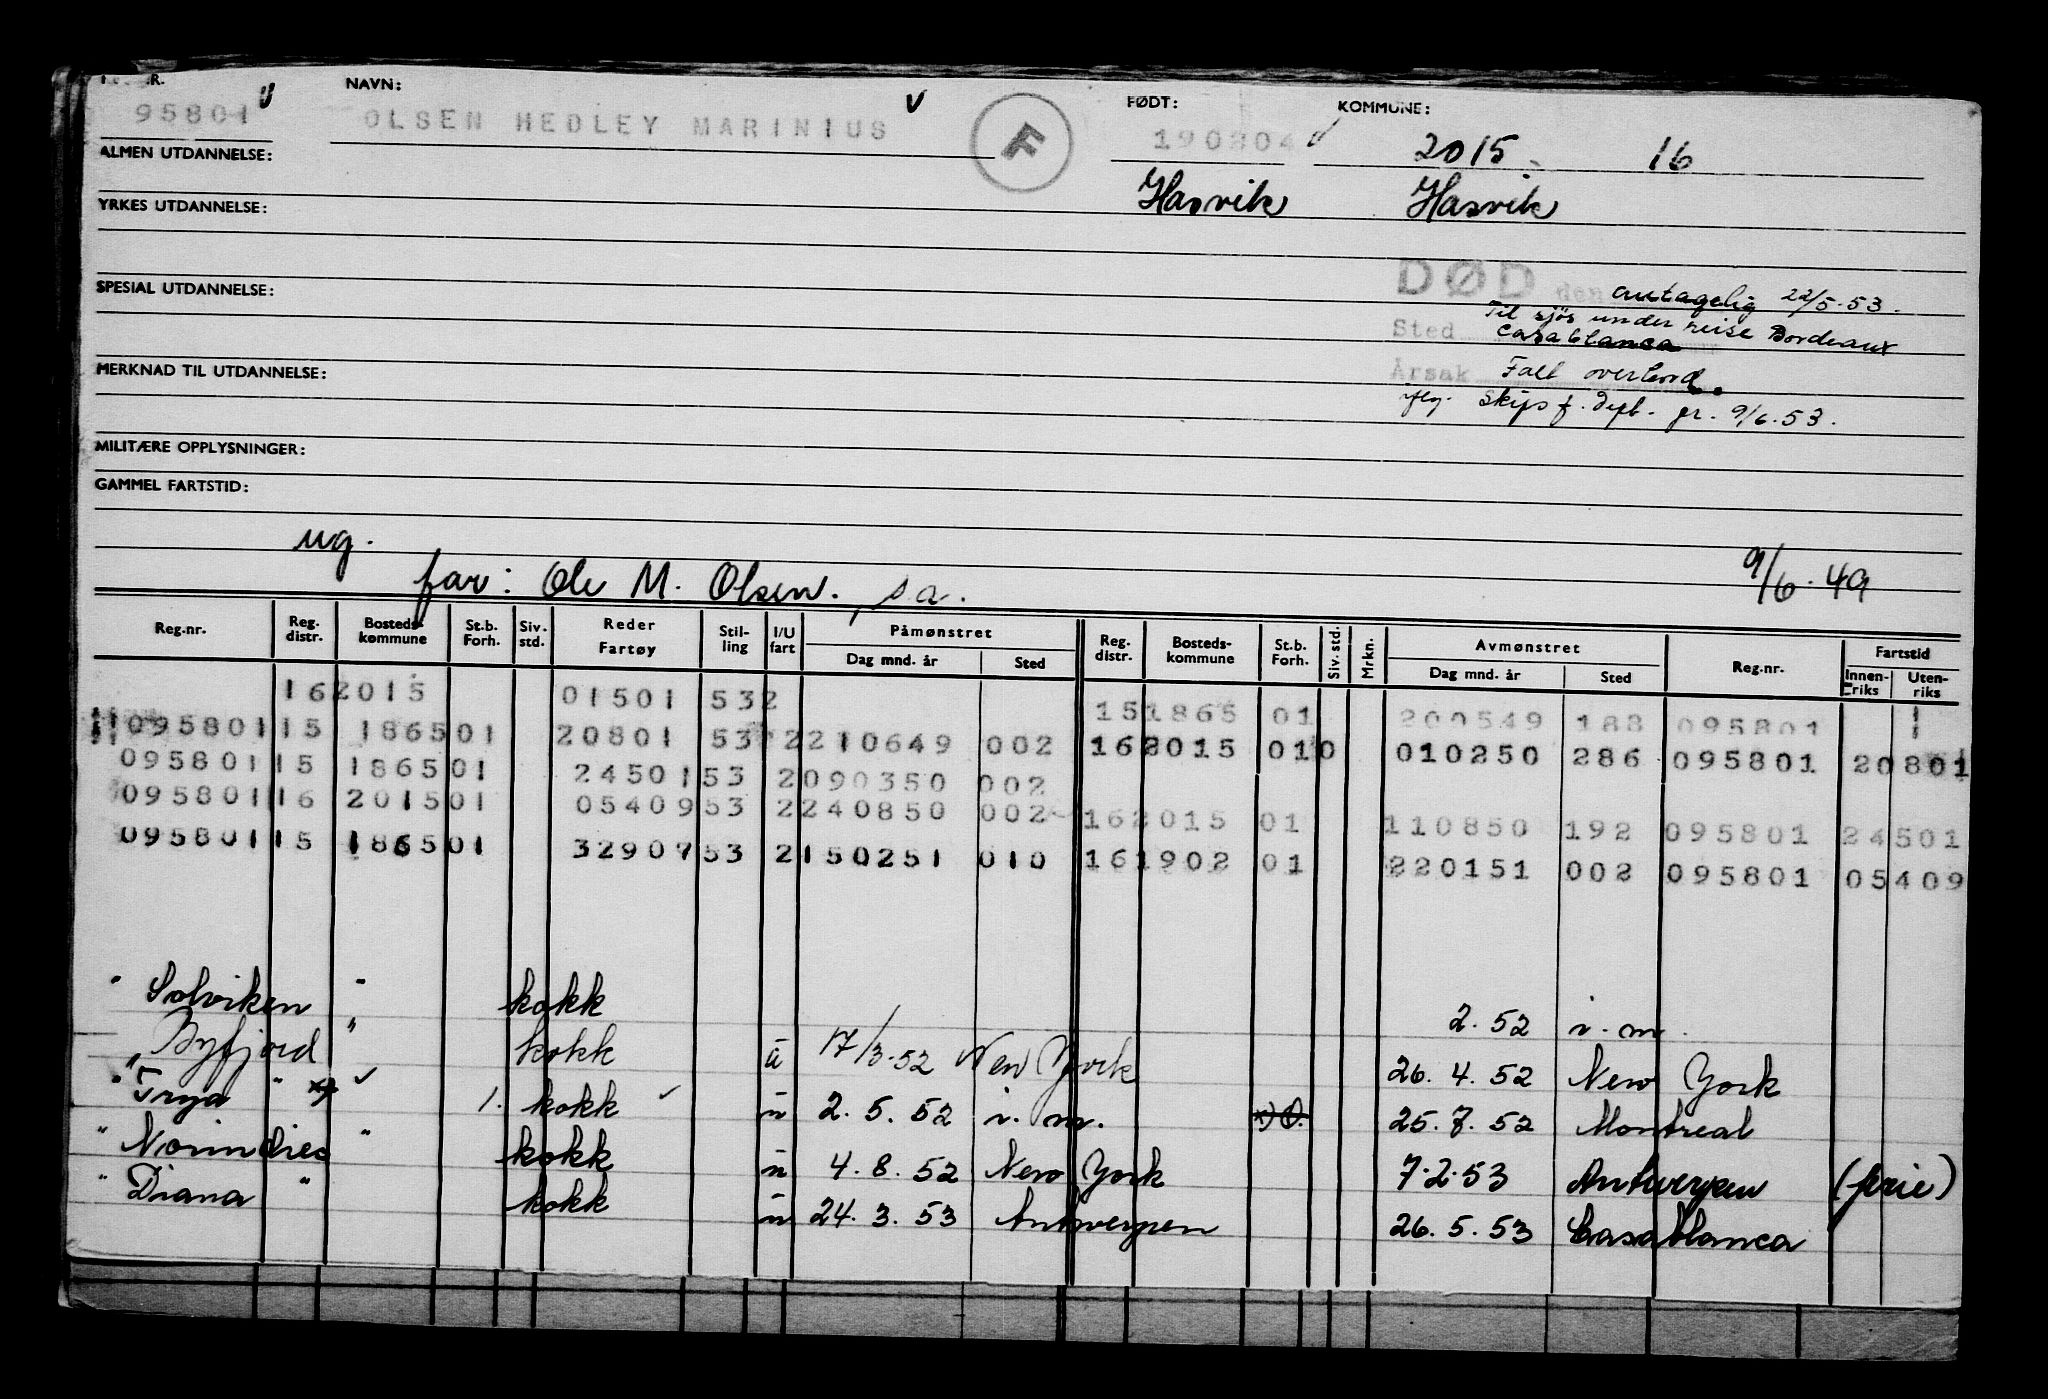 NAVN: FØDT: KOMMUNE:
95801 OLSEN HEDLEY MARINIUS F 190804 2015 16
ALMEN UTDANNELSE:
Hasvik Hasvik
YRKES UTDANNELSE:
DØD den antagelig 22/5.53.
SPESIAL UTDANNELSE:
Sted Til sjøs under reise Bordeaux
Casablanca
Årsak Falt overbord.
MERKNAD TIL UTDANNELSE:
iflg. Skips f. 9/6.53.
MILITÆRE OPPLYSNINGER:
GAMMEL FARTSTID:
ug.
far: Ole M. Olsen. s a. 9/6.49
Reg.nr. Reg. distr. Bosteds-kommune St.b. Forh. Siv. std. Reder Fartøy Stil-ling I/U fart Påmønstret Dag mnd. år Sted Reg. distr. Bosteds-kommune St.b. Forh. Siv. std. Mrkn. Avmønstret Dag mnd. år Sted Reg.nr. Fartstid Innen-riks Uten-riks
162015 01501 532 151865 01 200549 188 095801
095801 15 186501 20801 53 2 210649 002 162015 010 010250 286 095801 20801
095801 15 186501 24501 53 2 090350 002
095801 16 201501 05409 53 2 240850 002 162015 01 110850 192 095801 24501
095801 15 186501 32907 53 2 150251 010 161902 01 220151 002 095801 05409
" Solviken " kokk 2.52 i.m.
" Byfjord " kokk u 17/3.52 New York 26.4.52 New York
" Trya " x) 1. kokk u 2.5.52 i.m. x) 25.7.52 Montreal
" Norindies " kokk u 4.8.52 New York 7.2.53 Antwerpen (ferie)
" Diana " kokk u 24.3.53 Antwerpen 26.5.53 Casablanca